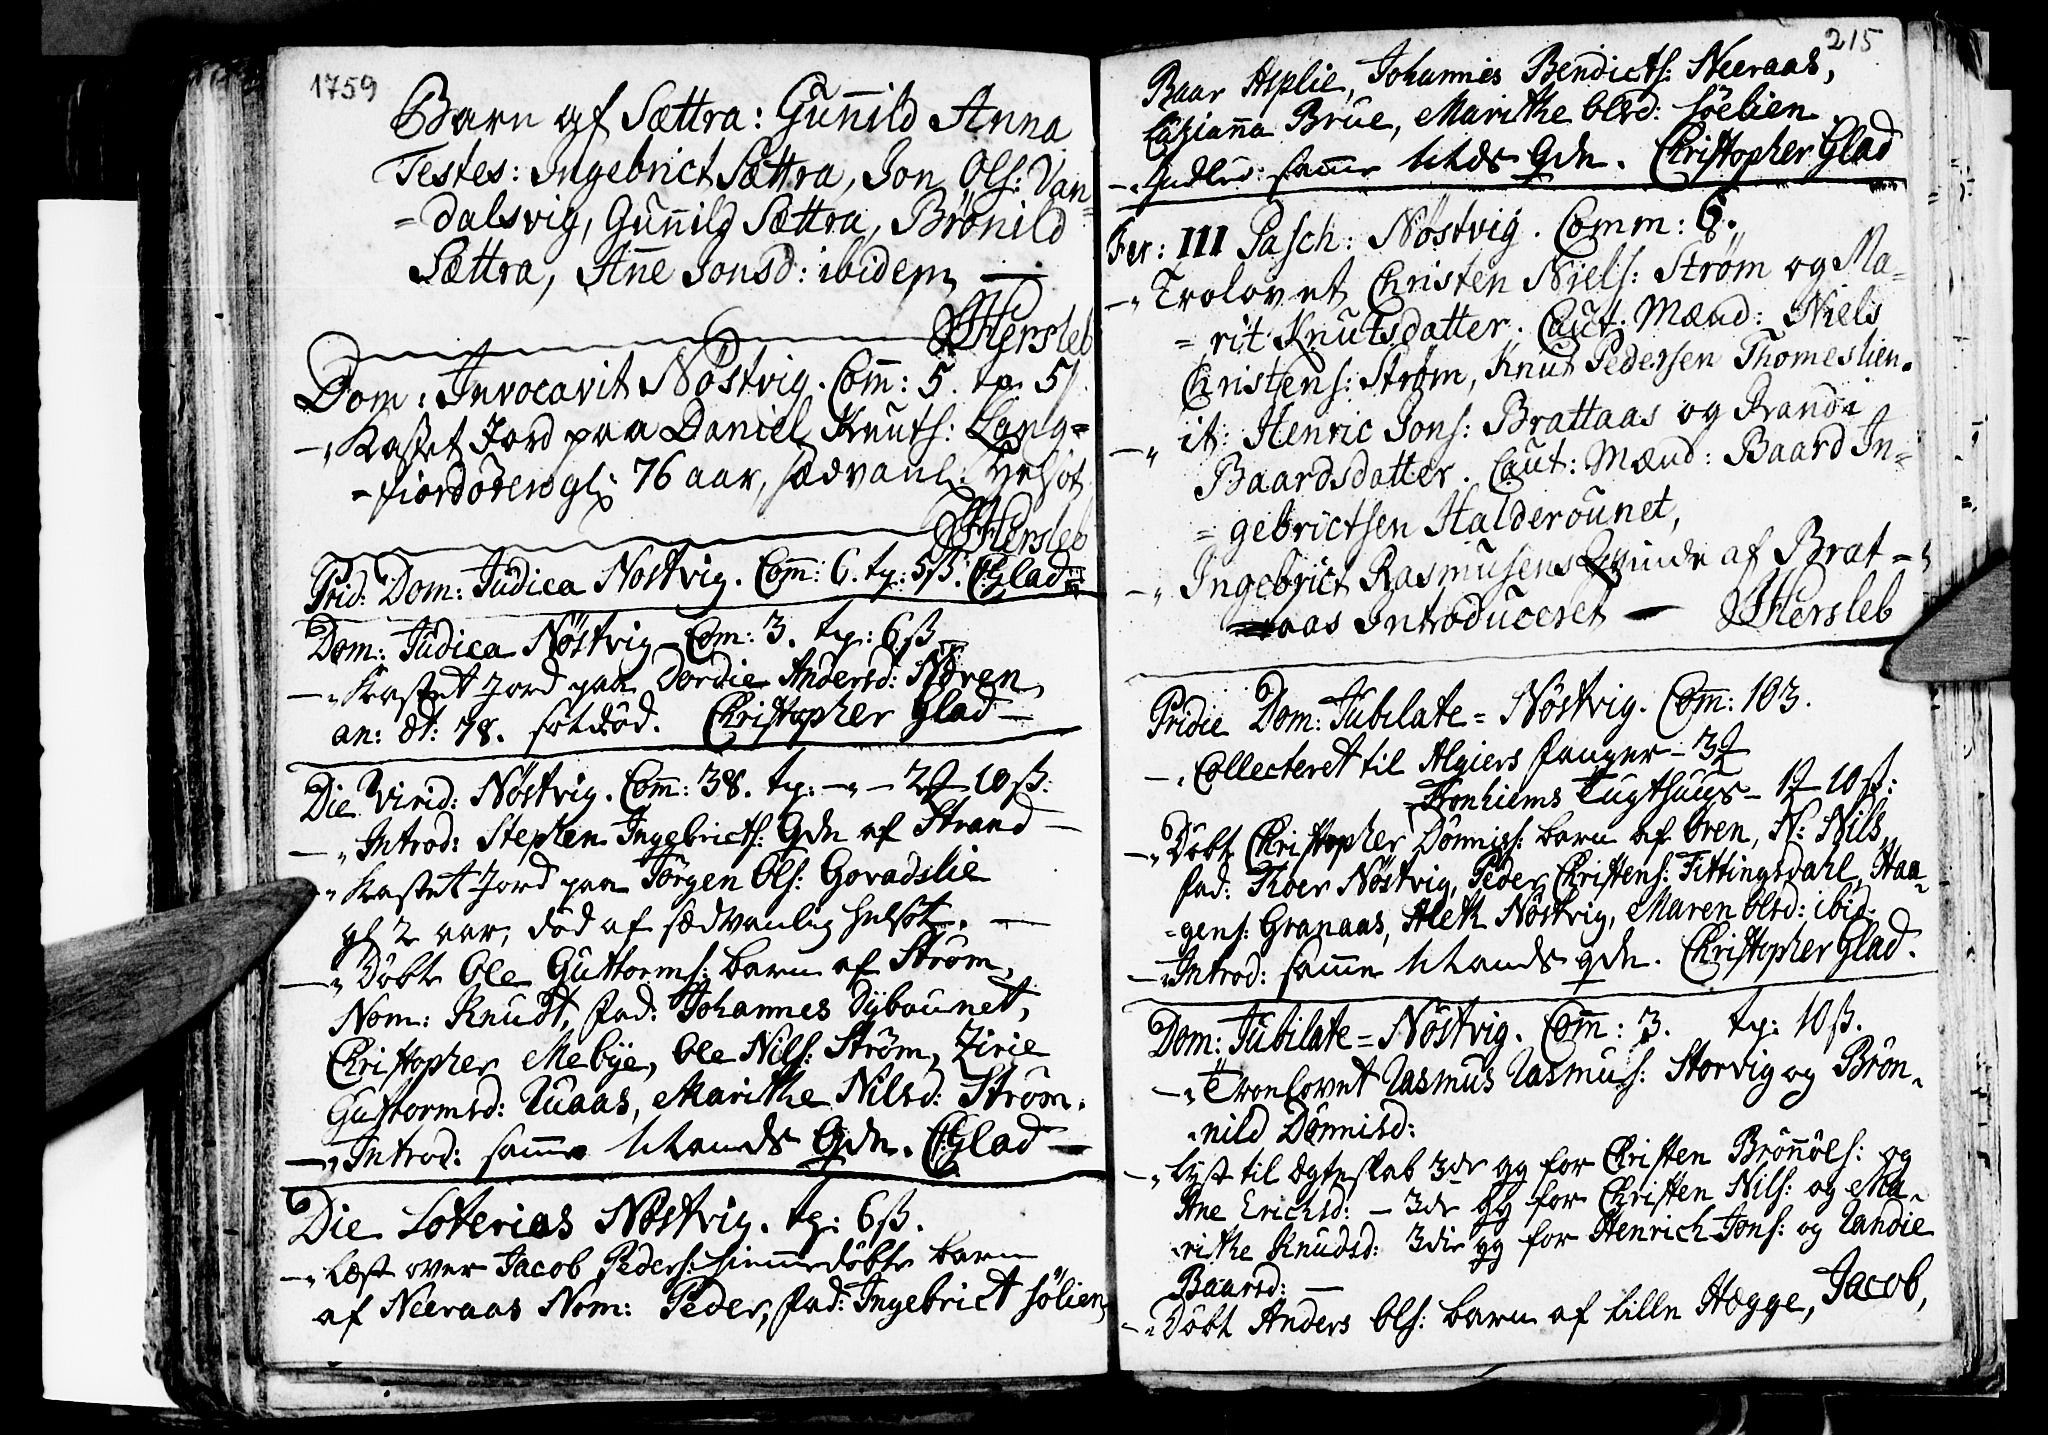 1759
Barn af Sættra: Gunnild Anna
Testes: Ingebrict Sættra, Jon Ols: Van-
=dalsvig, Gunnild Sættra, Brönild
Sættra, Anne Jonsd: ibidem
Hersleb
Dom: Invocavit Nöstvig. Comm: 5. tp. 5
Kastet Jord paa Daniel Knuts: Lang=
=fiordören gl: 76 aar, sædvanl: Helsot
Hersleb
Prid: Dom: Judica Nöstvig. Comm: 6. tp: 5ß. CGlad
Dom: Judica Nöstvig Com: 3. tp: 6ß
Kastet Jord paa Dordie Andersd: Nören,
an: æt: 78. sotdöd. Christopher Glad
Die Virid: Nöstvig. Comm: 38. tp: 2 10ß:
Introd: Stephen Ingebricts: Qdn af Strand
Kastet Jord paa Jörgen Ols: Goradslie
gl 2 aar, död af sædvanlig helsot.
Döbt Ole Guttorms: barn af Ström,
Nom: Knudt, fad: Johannes Dybounet,
Christopher Mebÿe, Ole Nils: Ström, Zirie
Guttormsd: Uuaas, Marithe Nilsd: Ström.
Introd: samme Mands Qdn. CGlad
Die Soterias Nöstvig. tp: 6ß.
Læst over Jacob Peders: hiemedöbte barn
af Neeraas Nom: Peder, fad: Ingebrict Sölien,
215
Baar Asplie, Johannes Bendicts: Neeraas,
Brue, Marithe Olsd: Söelien
Indled: samme Mands Qdn. Christopher Glad
Fer: III Pasch: Nöstvig. Comm: 6.
Trolovet Christen Niels: Ström og Ma=
=rit Knutsdatter. Caut: Mænd: Niels
Christens: Ström, Knut Pedersen Thomeslien.
it: Henric Jons: Brattaas og Randi
Baardsdatter. Caut: Mænd: Baard In=
=gebrictsen Halderöunet,
Ingebrict Rasmusens Qvinde af Brat=
aas Introduceret Hersleb
Pridie Dom: Jubilate = Nöstvig. Comm: 103.
Collecteret til Algiers fanger 3
Tronhiems Tugthuus 1 10ß:
Döbt Christopher Dönnis: barn af Oren, N: Nils,
fad: Thoer Nöstvig, Peder Christens: Fittingsdahl, Haa-
=gens: Granaas, Aleth Nöstvig, Maren Olsd: ibid.
Introd: samme Mands qdn. Christopher Glad.
Dom: Jubilate = Nöstvig. Comm: 3. tp: 10ß.
Troelovet Rasmus Rasmus: Storvig og Brön-
nild Dönnisd:
Lyst til Ægteskab 3de gg for Christen Brönöls: og
Ane Erichsd: – 3de gg for Christen Nils: og Ma-
rithe Knudsd: 3die gg for Henrich Jons: og Randie
Baarsd:
Döbt Anders Ols: barn af Lille Hogge, Jacob,